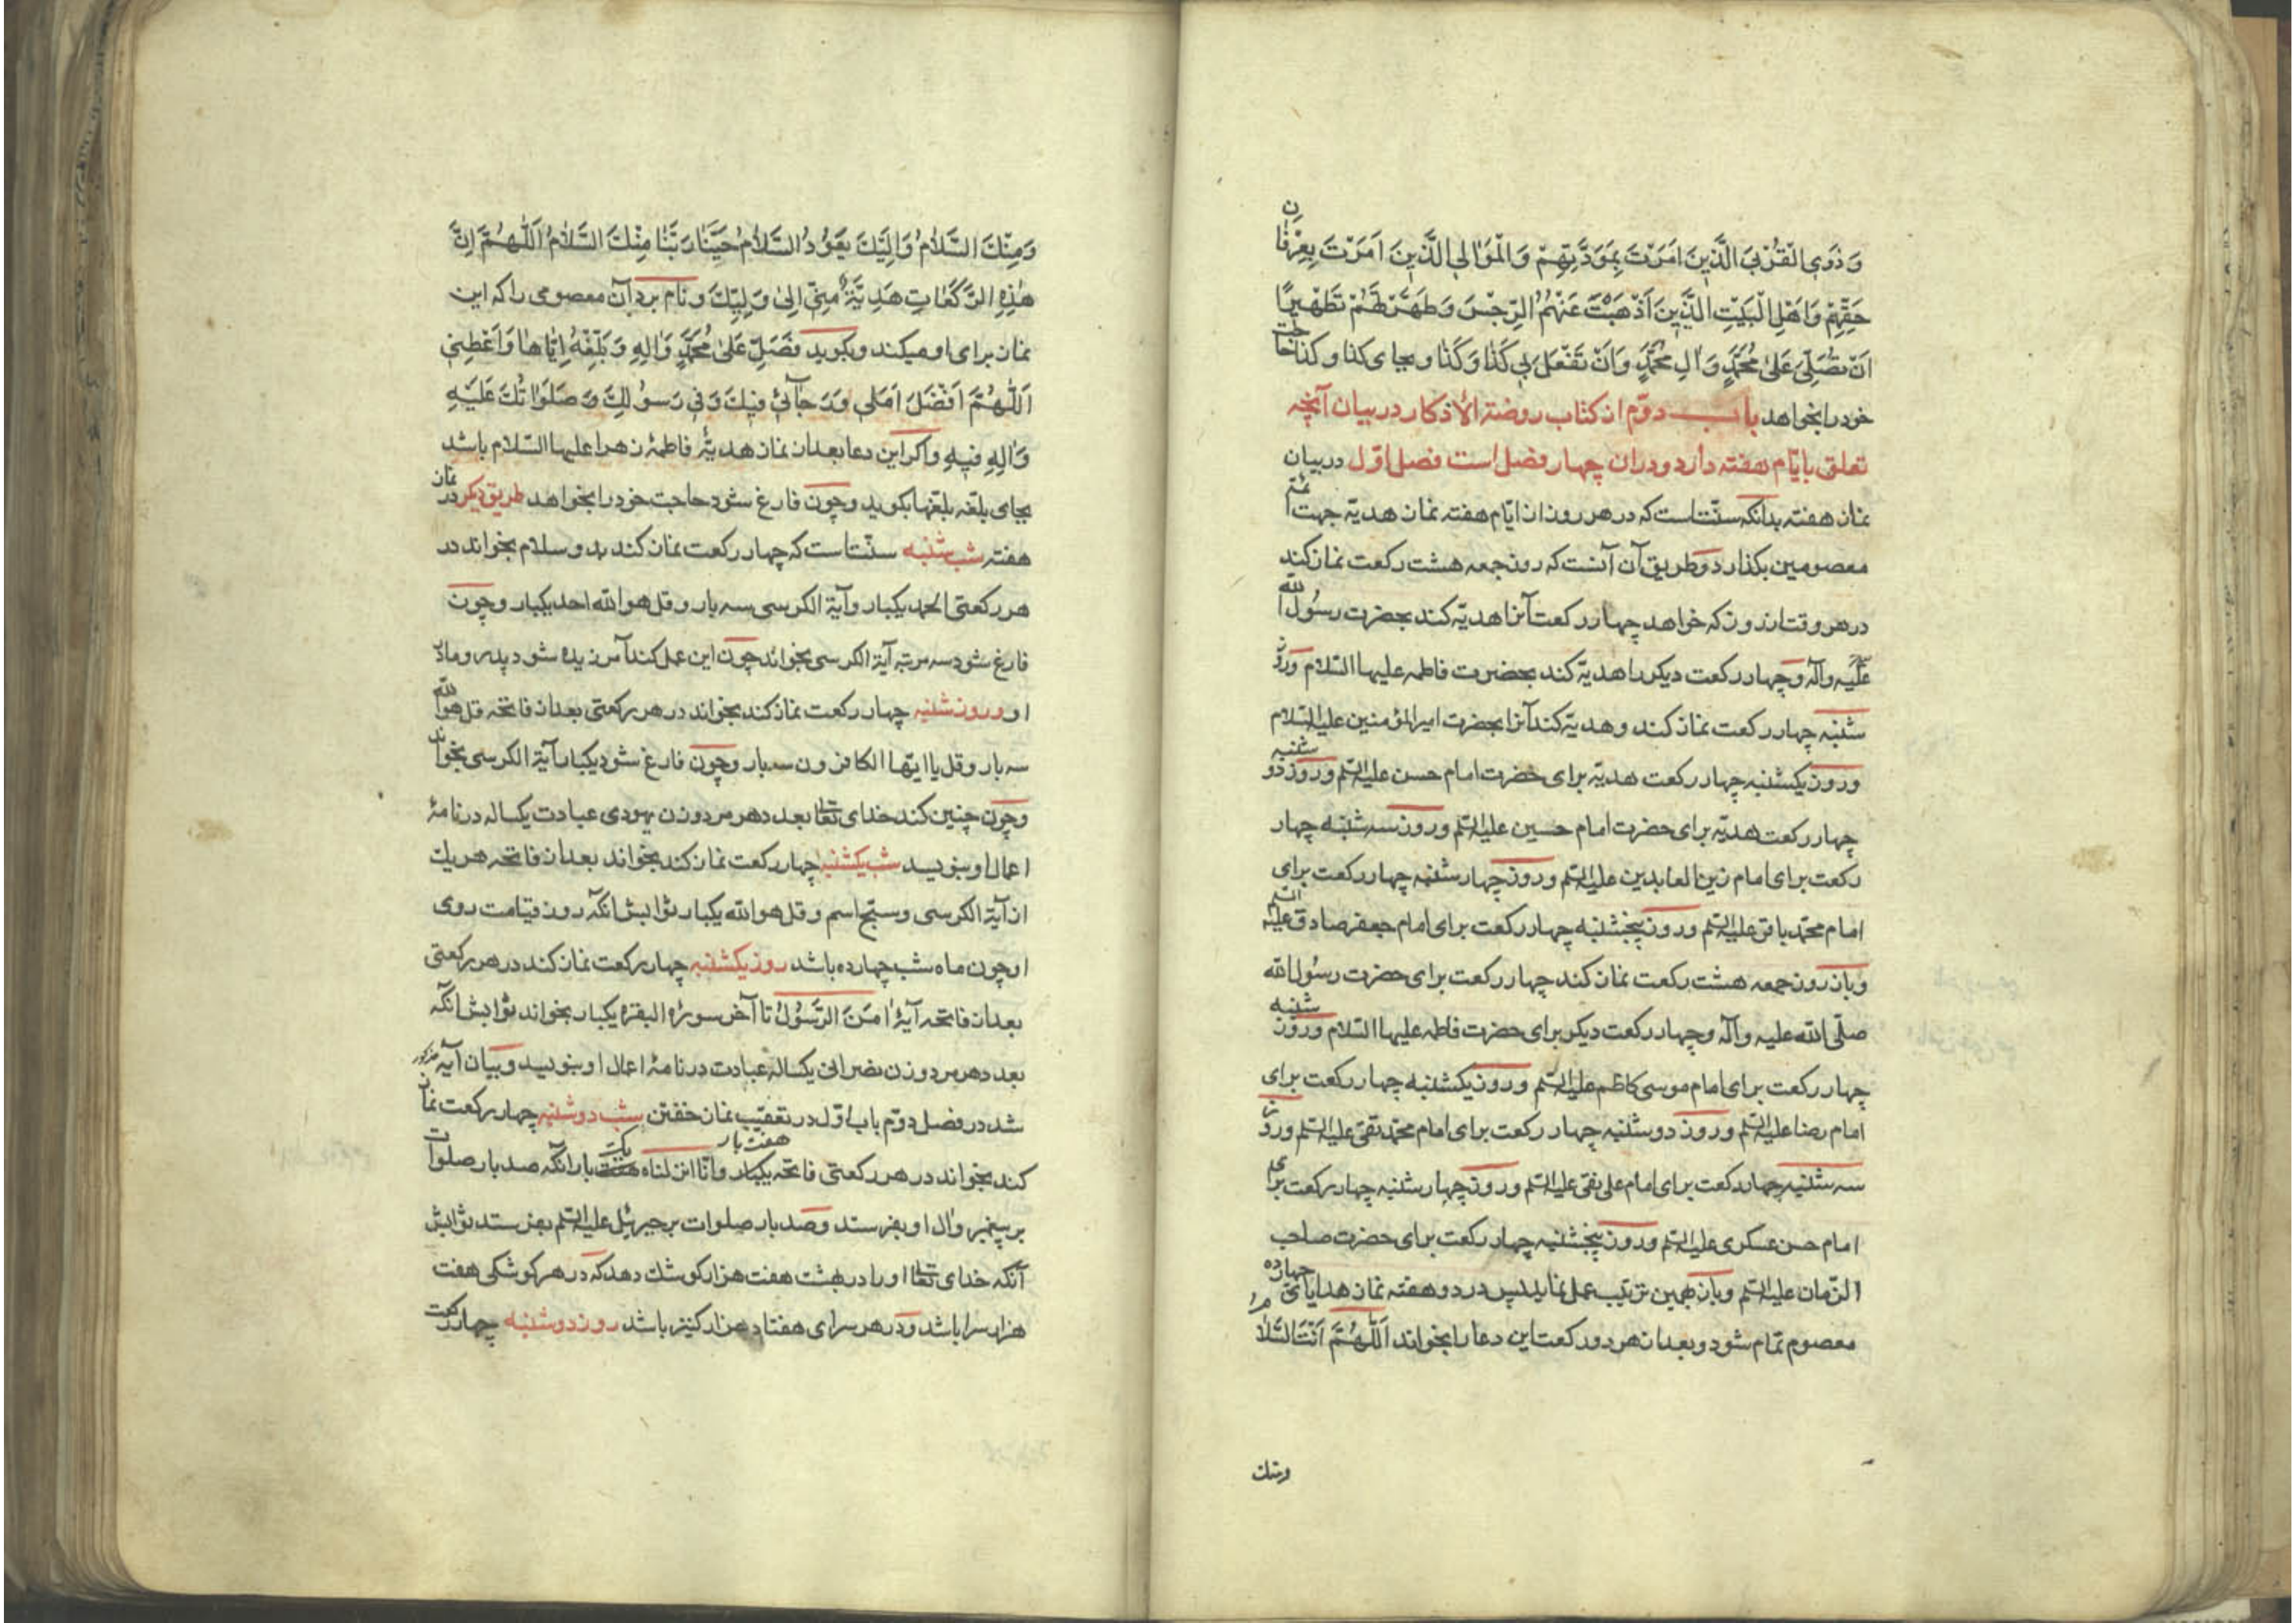 وَذَوِي الْقُرْبَى الَّذِينَ اَمَرْتَ بِمَوَدَّتِهِمْ وَالْمَوَالِي الَّذِينَ اَمَرْتَ بِعِرْفَانِ
حَقِّهِمْ وَاَهْلِ الْبَيْتِ الَّذِينَ اَذْهَبْتَ عَنْهُمُ الرِّجْسَ وَطَهَّرْتَهُمْ تَطْهِيرًا
اَنْ تُصَلِّيَ عَلٰى مُحَمَّدٍ وَاٰلِ مُحَمَّدٍ وَاَنْ تَفْعَلَ بِي كَذَا وَكَذَا وبجای کذا وکذا حاجات
خود را بخواهد باب دوّم از کتاب روضة الاذکار در بیان آنچه
تعلق بایّام هفته دارد و دران چهار فصل است فصل اوّل در بیان
نماز هفته بدانکه سنّتست که در هر روز از ایّام هفته نماز هدیّه جهت ائمّه
معصومین بکذارد وطریق آن آنست که روز جمعه هشت رکعت نماز کند
در هر وقت از روز که خواهد چهار رکعت آنرا هدیّه کند بحضرت رسول الله
علیه وآله وچهار رکعت دیکر را هدیّه کند بحضرت فاطمه علیها السّلام وروز
شنبه چهار رکعت نماز کند وهدیّه کند آنرا بحضرت امیر المؤمنین علیه السّلام
وروز یکشنبه چهار رکعت هدیّه برای حضرت امام حسن علیه السّلم وروز دو شنبه
چهار رکعت هدیّه برای حضرت امام حسین علیه السّلم وروز سه شنبه چهار
رکعت برای امام زین العابدین علیه السّلم وروز چهار شنبه چهار رکعت برای
امام محمّد باقر علیه السّلم وروز پنجشنبه چهار رکعت برای امام جعفر صادق علیه السّلم
وباز روز جمعه هشت رکعت نماز کند چهار رکعت برای حضرت رسول الله
صلّی الله علیه وآله وچهار رکعت دیکر برای حضرت فاطمه علیها السّلام وروز شنبه
چهار رکعت برای امام موسی کاظم علیه السّلم وروز یکشنبه چهار رکعت برای
امام رضا علیه السّلم وروز دوشنبه چهار رکعت برای امام محمّد تقی علیه السّلم وروز
سه شنبه چهار رکعت برای امام علی نقی علیه السّلم وروز چهار شنبه چهار رکعت برای
امام حسن عسکری علیه السّلم وروز پنجشنبه چهار رکعت برای حضرت صاحب
الزّمان علیه السّلم وباز بهمین ترتیب عمل نماید پس در دو هفته نماز هدایای چهارده
معصوم تمام شود وبعد از هر دو رکعت این دعا را بخواند اَللّٰهُمَّ اَنْتَ السَّلَامُ
ومنك
وَمِنْكَ السَّلَامُ وَاِلَيْكَ يَعُودُ السَّلَامُ حَيِّنَا رَبَّنَا مِنْكَ السَّلَامُ اَللّٰهُمَّ اِنَّ
هٰذِهِ الرَّكَعَاتِ هَدِيَّةٌ مِنِّي اِلٰى وَلِيِّكَ ونام برد آن معصومی را که این
نماز برای او میکند وبکوید فَصَلِّ عَلٰى مُحَمَّدٍ وَاٰلِهِ وَبَلِّغْهُ اِيَّاهَا وَاَعْطِنِي
اَللّٰهُمَّ اَفْضَلَ اَمَلِي وَرَجَائِي فِيكَ وَفِي رَسُولِكَ وَصَلَوَاتُكَ عَلَيْهِ
وَاٰلِهِ فِيهِ واکر این دعا بعد از نماز هدیّهٔ فاطمهٔ زهرا علیها السّلام باشد
بجای بلّغه بلّغها بکوید وچون فارغ شود حاجت خود را بخواهد طریق دیکر در نماز
هفته شب شنبه سنّتست که چهار رکعت نماز کند بدو سلام بخواند در
هر رکعتی الحمد یکبار وآیة الکرسی سه بار وقل هو الله احد یکبار وچون
فارغ شود سه مرتبه آیة الکرسی بخواند چون این عمل کند آمرزیده شود پدر ومادر
او وروز شنبه چهار رکعت نماز کند بخواند در هر رکعتی بعد از فاتحه قل هو الله
سه بار وقل یا ایّها الکافرون سه بار وچون فارغ شود یکبار آیة الکرسی بخواند
وچون چنین کند خدای تعالی بعدد هر مرد وزن یهودی عبادت یکساله در نامهٔ
اعمال او بنویسد شب یکشنبه چهار رکعت نماز کند بخواند بعد از فاتحه هر یك
از آیة الکرسی وسبّح اسم وقل هو الله یکبار ثوابش آنکه روز قیامت روی
او چون ماه شب چهارده باشد روز یکشنبه چهار رکعت نماز کند در هر رکعتی
بعد از فاتحه آیهٔ اٰمَنَ الرَّسُولُ تا آخر سورهٔ البقره یکبار بخواند ثوابش آنکه
بعدد هر مرد وزن نصرانی یکساله عبادت در نامهٔ اعمال او بنویسد وبیان آیه مذکور
شد در فصل دوّم باب اوّل در تعقیب نماز خفتن شب دوشنبه چهار رکعت نماز
هفت بار یکبار
کند بخواند در هر رکعتی فاتحه یکبار وانّا انزلناه هفت بار آنکه صد بار صلوات
بر پیغمبر وآل او بفرستد وصد بار صلوات بر جبرئیل علیه السّلم بفرستد ثوابش
آنکه خدای تعالی او را در بهشت هفت هزار کوشك دهد که در هر کوشکی هفت
هزار سرا باشد ودر هر سرای هفتاد هزار کنیز باشد روز دوشنبه چهار رکعت